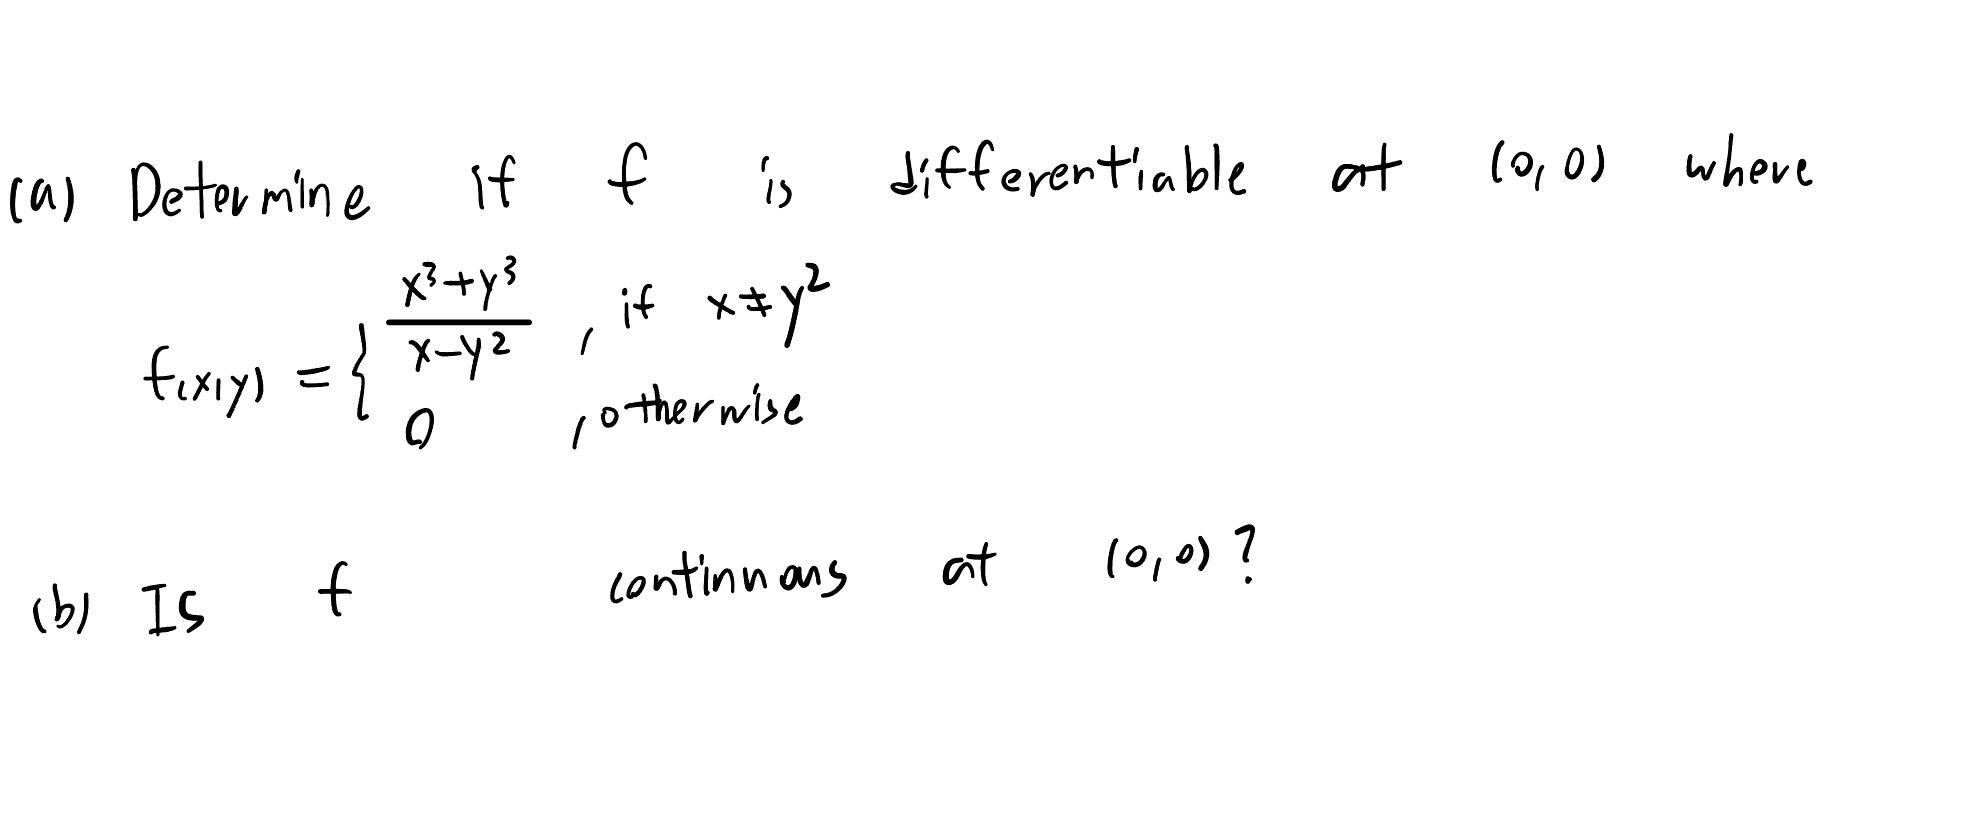 (a) Determine if f is differentiable at (0,0) where
f(x,y) = { x³+y³ / x-y² , if x≠y²
0 , otherwise
(b) Is f continuous at (0,0)?